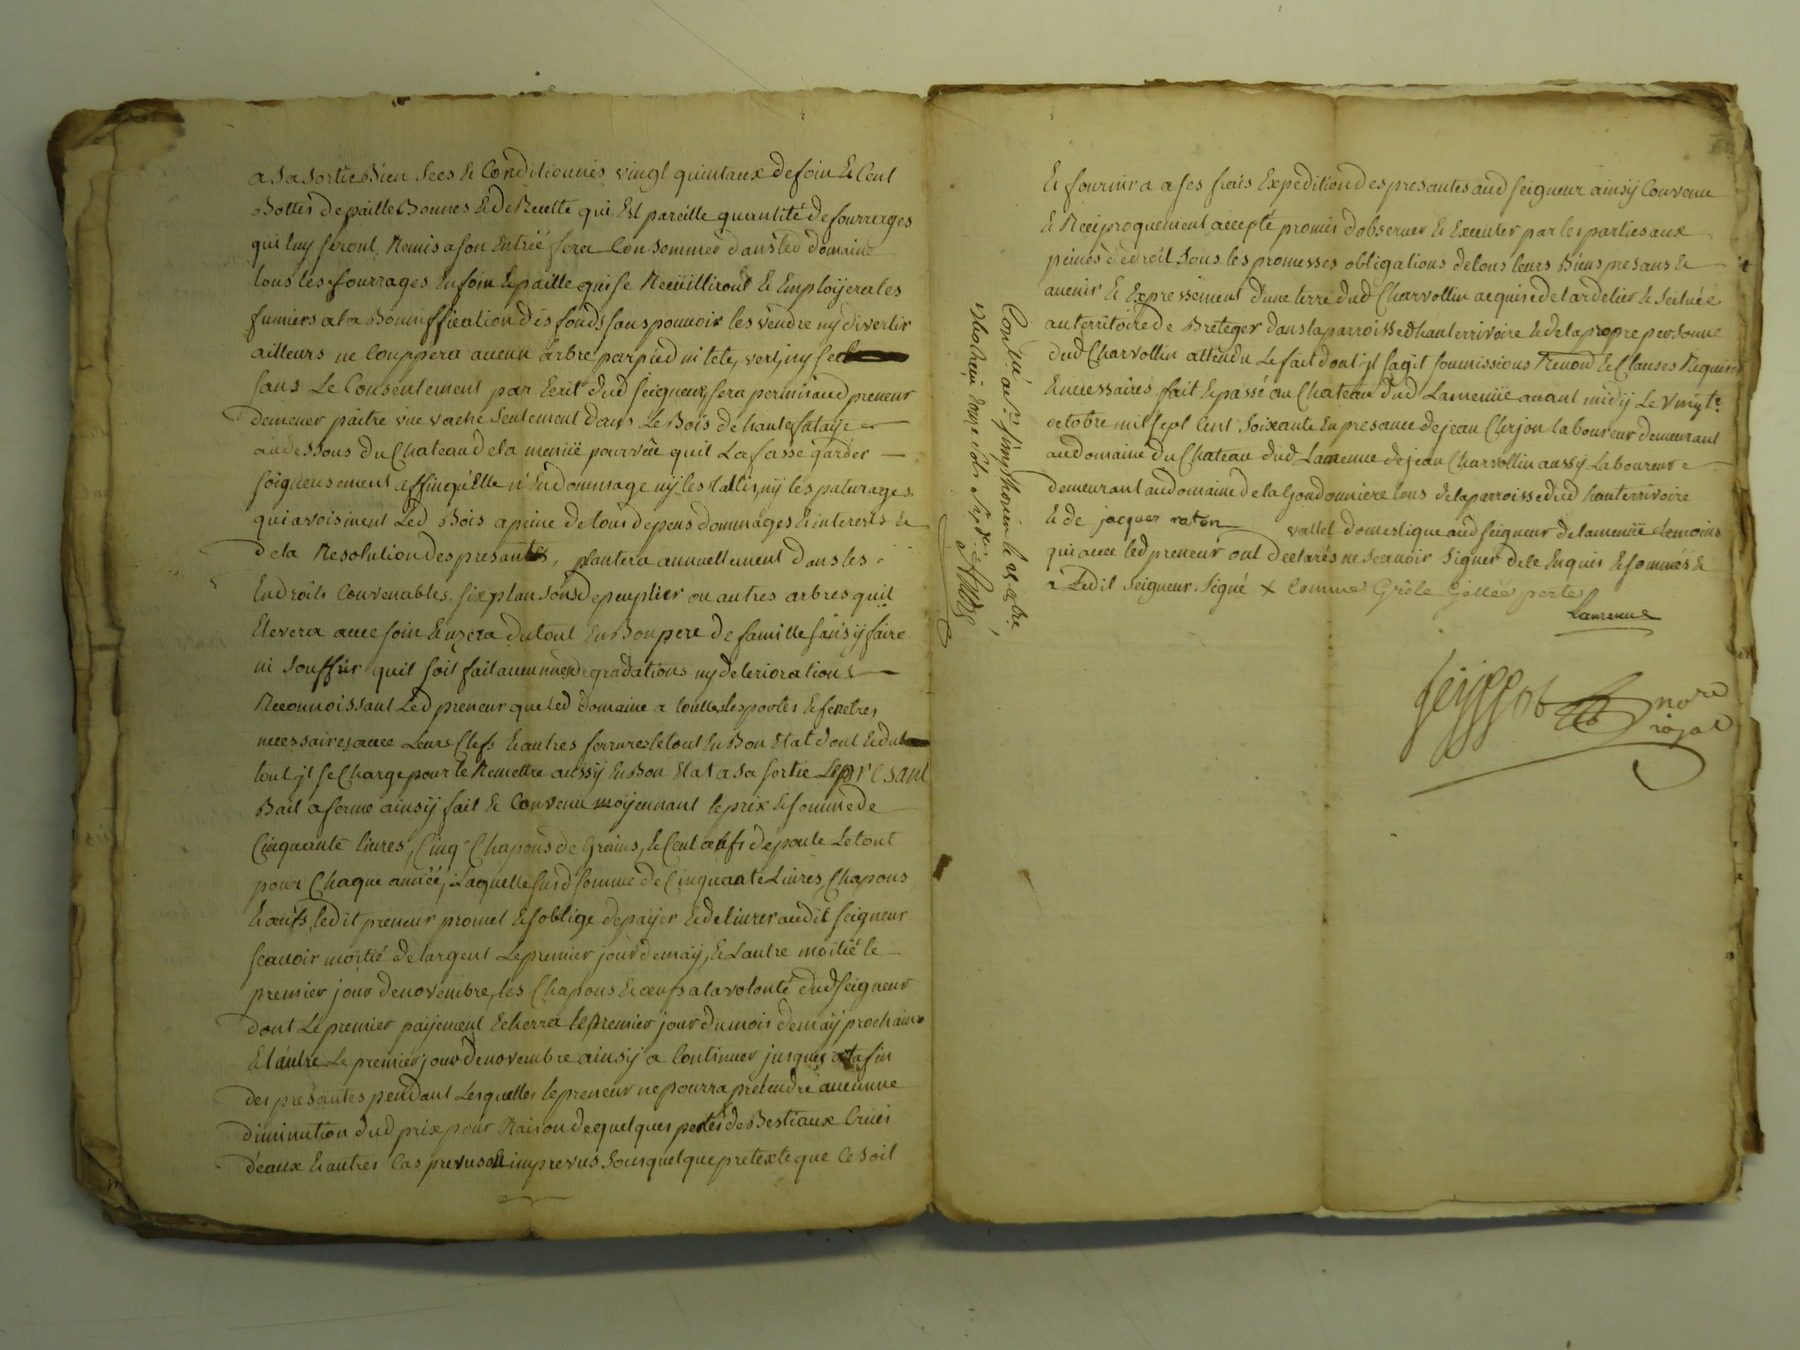 a Sa Sortie Bien Secs & Conditionnés vingt quintaux de foin & Cent
Bottes de paille Bonnes & de Recette qui Est pareille quantité de fourrages
qui luy seront Remis a son Entrée fera Consommer dans led domaine
tous les fourrages En foin & paille qui se Recüilliront & Employera les
fumiers a la Boniffication des fonds sans pouvoir les vendre ny divertir
ailleurs ne Couppera aucun arbre par pied ni tete, vert, ny sec
sans Le Consentement par Ecrit dud seigneur, sera permis aud preneur
de mener paitre une vache Seulement dans Le Bois de haute futaye
au dessous du Chateau de la menüe pourvû quil La fasse garder
soigneusement affin qu'Elle n'Endommage ny les taillis, ny les paturages
qui avoisinent Led Bois a peine de tous depens dommages & interests &
de la Resolution des presantes, plantera annuellement dans les
Endroits Convenables six plansons de peuplier ou autres arbres quil
Elevera avec soin & usera du tout En Bon pere de famille sans y faire
ni souffrir quil soit fait aucunnes degradations ny deteriorations
Reconnoissant Led preneur que led domaine a touttes les portes & fenetres
necessaires avec Leurs Clefs & autres ferrures le tout En Bon Etat dont & du
tout jl se Charge pour le Remettre aussy En Bon Etat a Sa sortie Le presant
Bail a ferme ainsy fait & Convenu moyennant le prix & somme de
Cinquante livres, Cinq Chapons de Grains, & Cent œufs de poule Le tout
pour Chaque année, Laquelle susd somme de Cinquante Livres, Chapons
& œufs, ledit preneur promet & s'oblige de payer & delivrer audit seigneur
scavoir moitié de largent Le premier jour de may, & Lautre moitié le
premier jour de novembre, les Chapons & œufs a la volonté dud seigneur
dont Le premier payement Echerra le premier jour du mois de may prochain
& l'autre Le premier jour de novembre ainsy a Continuer jusques a la fin
des presantes pendant Lesquelles le preneur ne pourra pretendre aucunne
diminution dud prix pour Raison de quelques pertes de Bestiaux Crues
d'eaux & autres Cas prevus ou imprevus sous quelque pretexte que Ce soit
& fournira a ses frais Expedition des presantes aud seigneur ainsy Convenu
& Reciproquement accepté promis d'observer & Executer par les parties aux
peines de droit sous les promesses obligations de tous leurs Biens presans &
avenir & Expressement d'une terre dud Charvollin acquise de lardelier & scituée
au territoire de Breteger dans la parroisse d'hauterrivoire & de la propre personne
dud Charvollin attendu Le fait dont jl sagit soumissions Renond & Clauses Requises
& necessaires fait & passé au Chateau dud Lamenüe avant midy Le vingte
octobre mil sept Cent soixante En presance de jean Chirjon laboureur demeurant
au domaine du Chateau dud Lamenue de jean Charvollin aussy Laboureur
demeurant au domaine de la Gondonniere tous de la parroisse dud hauterrivoire
& de jacques raton vallet domestique aud seigneur de lamenüe temoins
qui avec led preneur ont declarés ne scavoir signer de ce Enquis & sommés &
a Ledit Seigneur Signé x Comme Grêle Gellée perte
Lamenue
nore
royal
Conllé a St Simphorien le 25 8bre